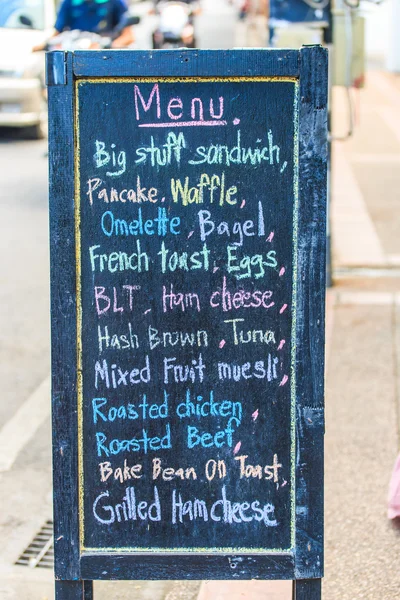 Menu.
Big stuff sandwich,
Pancake, Waffle,
Omelette, Bagel,
French toast, Eggs,
BLT, Ham cheese,
Hash Brown, Tuna,
Mixed Fruit muesli,
Roasted chicken,
Roasted Beef,
Bake Bean On Toast,
Grilled Ham cheese